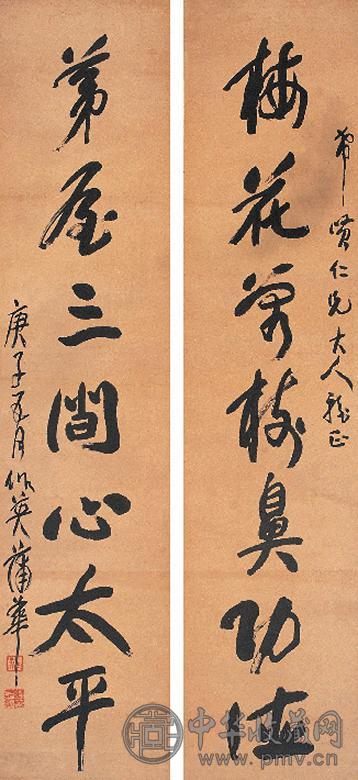 希賢仁兄大人雅正
梅花萬枝鼻功德
茅屋三間心太平
庚子五月作英蒲華
中华收藏网
www.pmv.cn